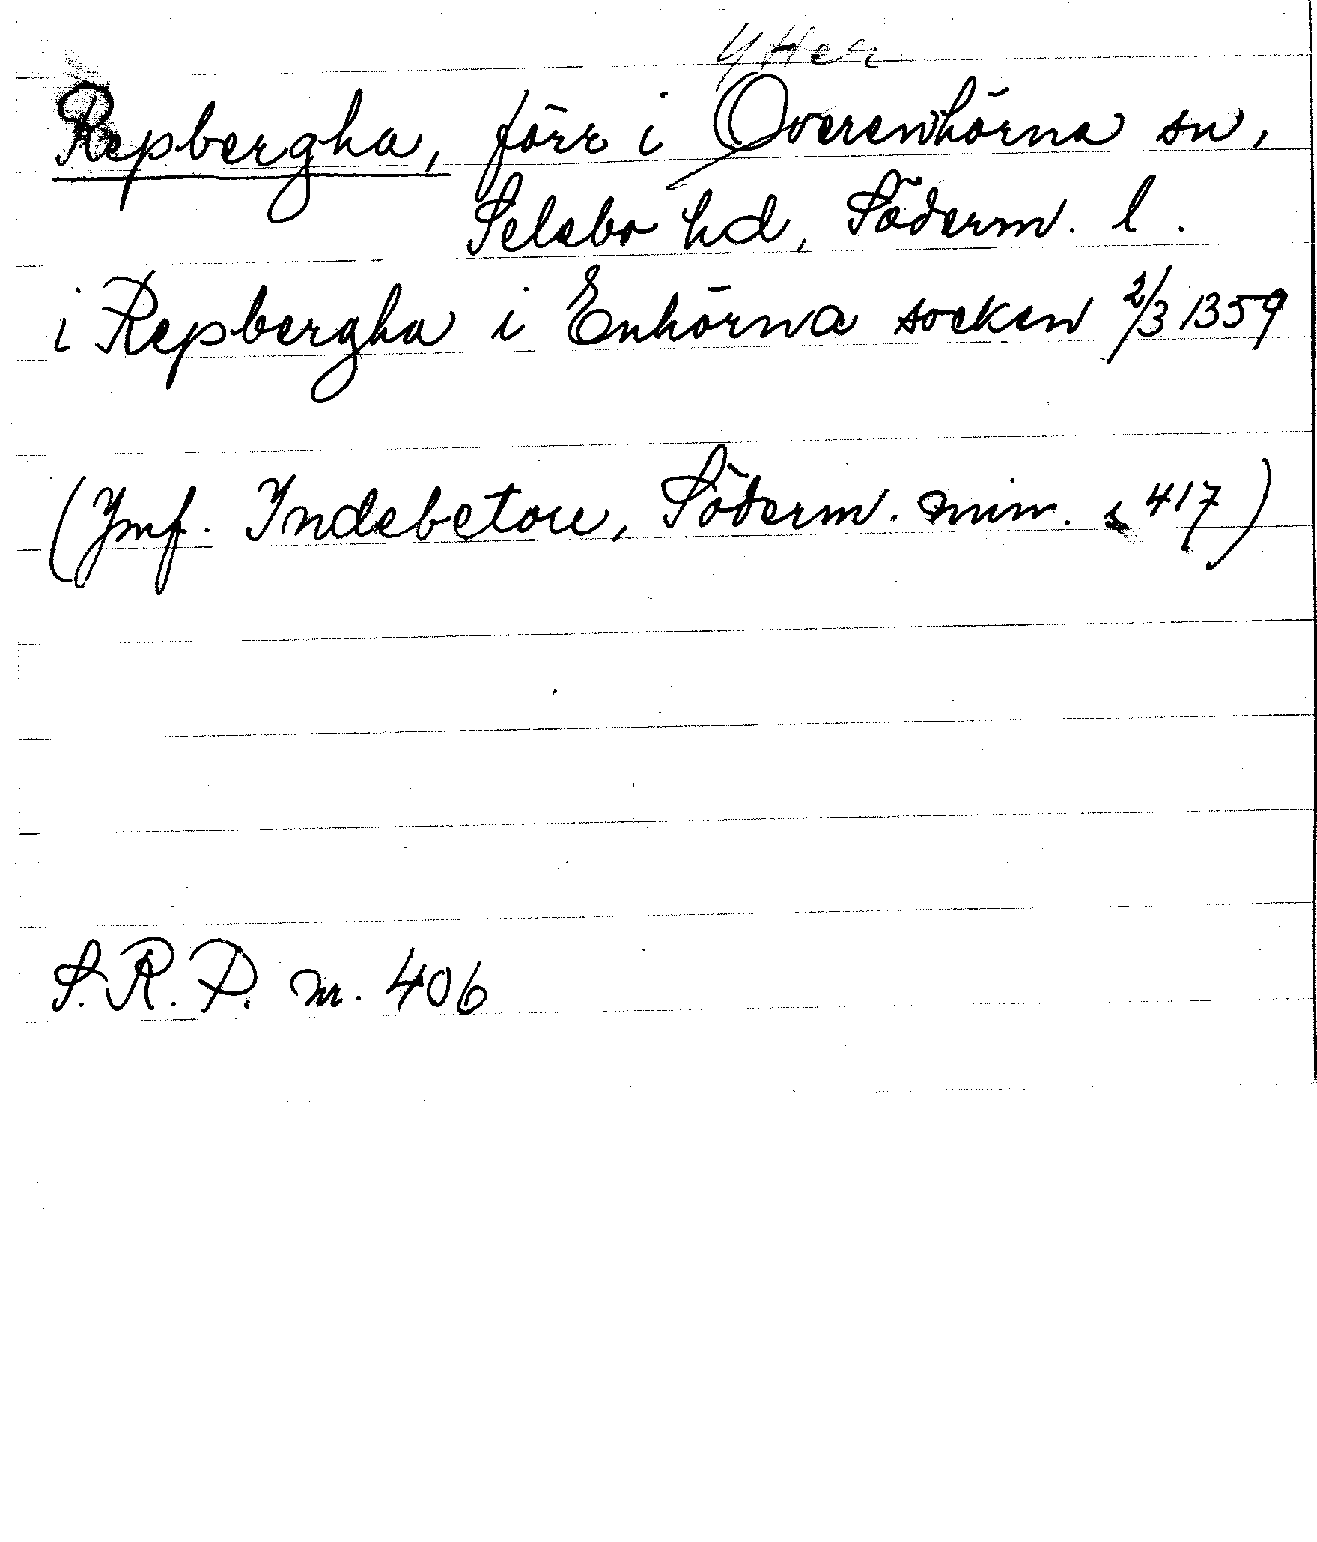 Ytter
Repbergha, förr i Överenhörna sn,
Selebo hd, Söderm. l.
i Repbergha i Enhörna socken 2/3 1359
(Jmf. Indebetou, Söderm. min. s 417)
S.R.P. nr. 406